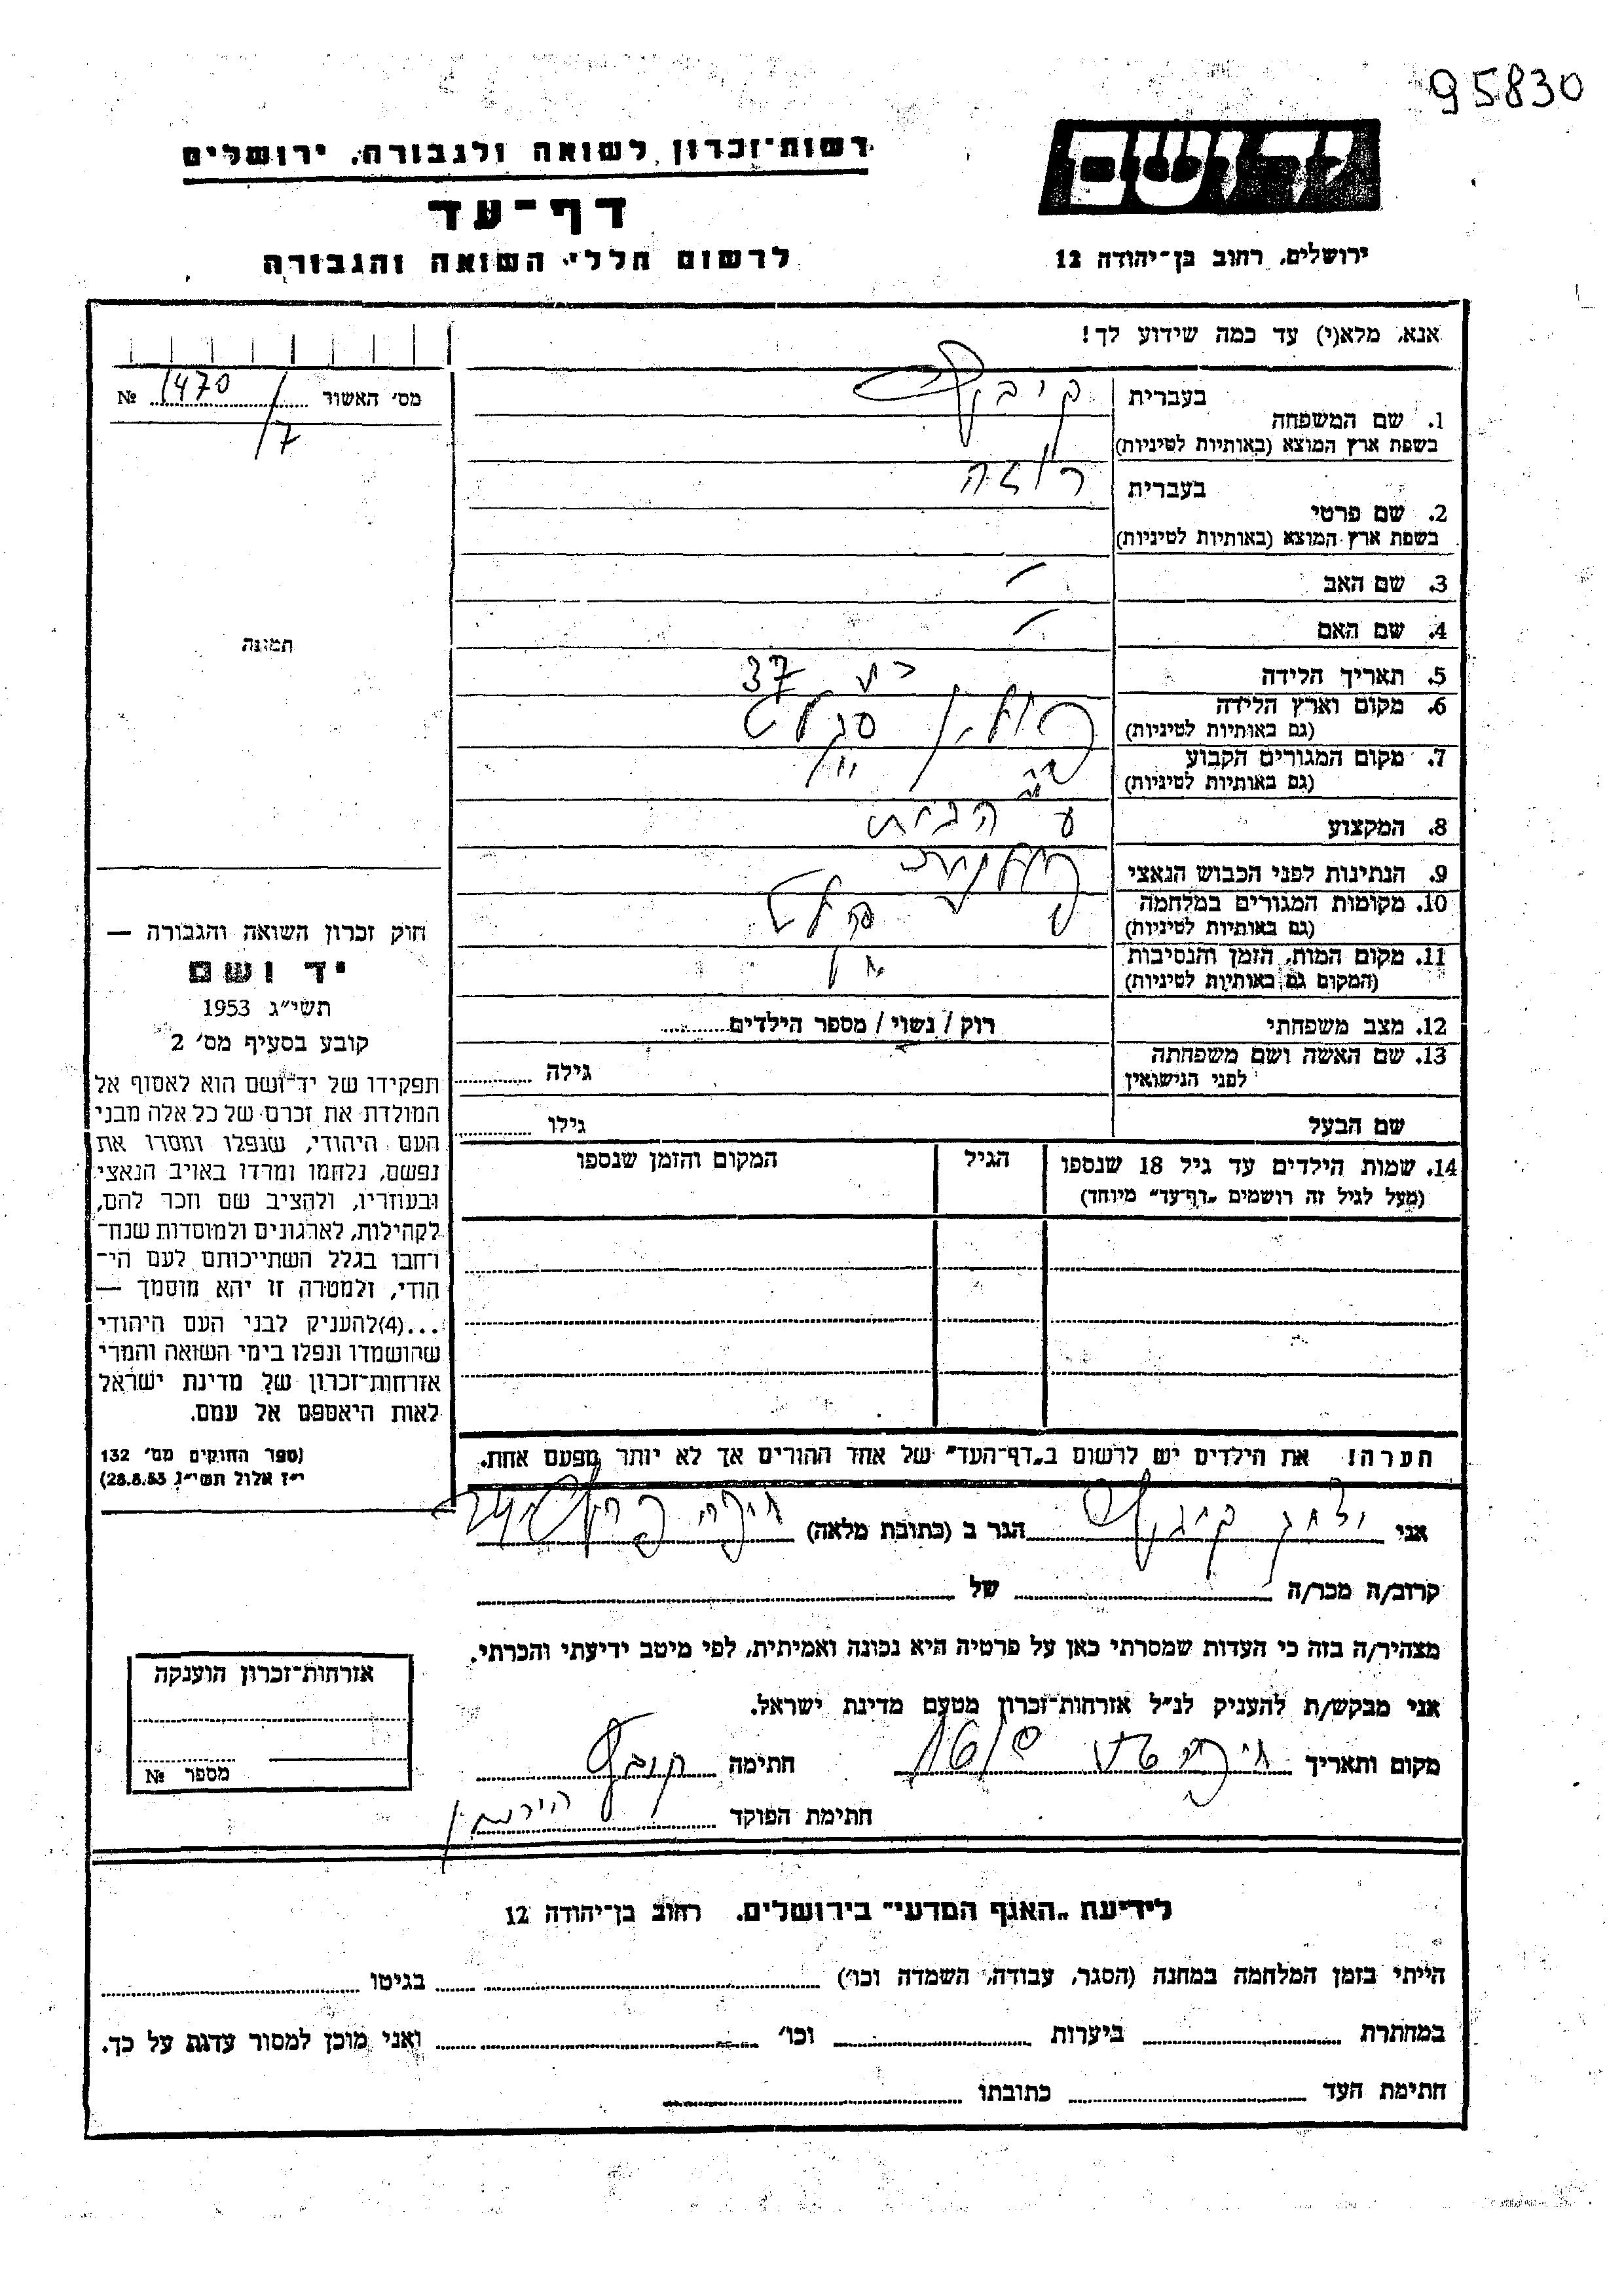 95830
יד ושם
רשות־זכרון לשואה ולגבורה, ירושלים
דף־עד
לרשום חללי השואה והגבורה
ירושלים, רחוב בן־יהודה 12
אנא, מלא(י) עד כמה שידוע לך!
מס׳ האשור 1470/7 №
1. שם המשפחה
בעברית
בשפת ארץ המוצא (באותיות לטיניות)
2. שם פרטי
בעברית רוזה
בשפת ארץ המוצא (באותיות לטיניות)
3. שם האב –
4. שם האם –
תמונה
5. תאריך הלידה 37
6. מקום וארץ הלידה
(גם באותיות לטיניות)
7. מקום המגורים הקבוע
(גם באותיות לטיניות)
8. המקצוע
9. הנתינות לפני הכבוש הנאצי
10. מקומות המגורים במלחמה
(גם באותיות לטיניות)
11. מקום המות, הזמן והנסיבות
(המקום גם באותיות לטיניות)
12. מצב משפחתי רוק / נשוי / מספר הילדים
13. שם האשה ושם משפחתה
לפני הנישואין
גילה
שם הבעל גילו
14. שמות הילדים עד גיל 18 שנספו
(מעל לגיל זה רושמים „דף־עד״ מיוחד)
הגיל
המקום והזמן שנספו
חוק זכרון השואה והגבורה —
יד ושם
תשי״ג 1953
קובע בסעיף מס׳ 2
תפקידו של יד־ושם הוא לאסוף אל
המולדת את זכרם של כל אלה מבני
העם היהודי, שנפלו ומסרו את
נפשם, נלחמו ומרדו באויב הנאצי
ובעוזריו, ולהציב שם וזכר להם,
לקהילות, לארגונים ולמוסדות שנח־
רחבו בגלל השתייכותם לעם הי־
הודי, ולמטרה זו יהא מוסמך —
...(4)להעניק לבני העם היהודי
שהושמדו ונפלו בימי השואה והמרי
אזרחות־זכרון של מדינת ישראל
לאות היאספם אל עמם.
(ספר החוקים מס׳ 132
י״ז אלול תשי״ג, 28.8.53)
הערה! את הילדים יש לרשום ב„דף־העד״ של אחד ההורים אך לא יותר מפעם אחת.
אני
הגר ב (כתובת מלאה)
קרוב/ה מכר/ה של
מצהיר/ה בזה כי העדות שמסרתי כאן על פרטיה היא נכונה ואמיתית, לפי מיטב ידיעתי והכרתי.
אני מבקש/ת להעניק לנ״ל אזרחות־זכרון מטעם מדינת ישראל.
מקום ותאריך
חתימה
חתימת הפוקד
אזרחות־זכרון הוענקה
מספר №
לידיעת „האגף המדעי״ בירושלים, רחוב בן־יהודה 12
הייתי בזמן המלחמה במחנה (הסגר, עבודה, השמדה וכו׳) בגיטו
במחתרת ביערות וכו׳ ואני מוכן למסור עדות על כך.
חתימת העד כתובתו